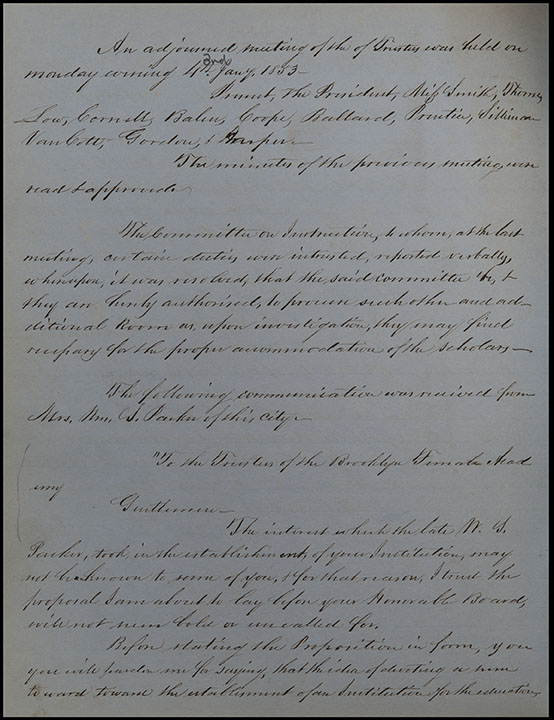 An adjourned meeting of the of Trustees was held on
monday evening 4th 3rd Jany, 1853—
Present, the President, Miss Smith, Thorne,
Low, Cornell, Baker, Coope, Ballard, Prentice, Silliman
Van Cott, Gordon, & Harper—
The minutes of the previous meeting, were
read & approved
The Committee on Instruction, to whom, at the last
meeting, certain duties were intrusted, reported verbally,
whereupon, it was resolved, that the said committee be, &
they are hereby authorised, to procure such other and ad-
ditional Room as, upon investigation, they may find
necessary for the proper accommodation of the scholars—
The following communication was received from
Mrs, Wm, S. Packer of this city—
"To the Trustees of the Brooklyn Female Acad
emy
Gentlemen—
The interest which the late W. S.
Packer, took in the establishment, of your Institution, may
not be known to some of you, & for that reason, I trust the
proposal I am about to lay before your Honorable Board,
will not seem bold or uncalled for.
Before stating the Proposition in form, you
you will pardon me for saying, that the idea of devoting a sum
toward the establishment of an Institution for the education